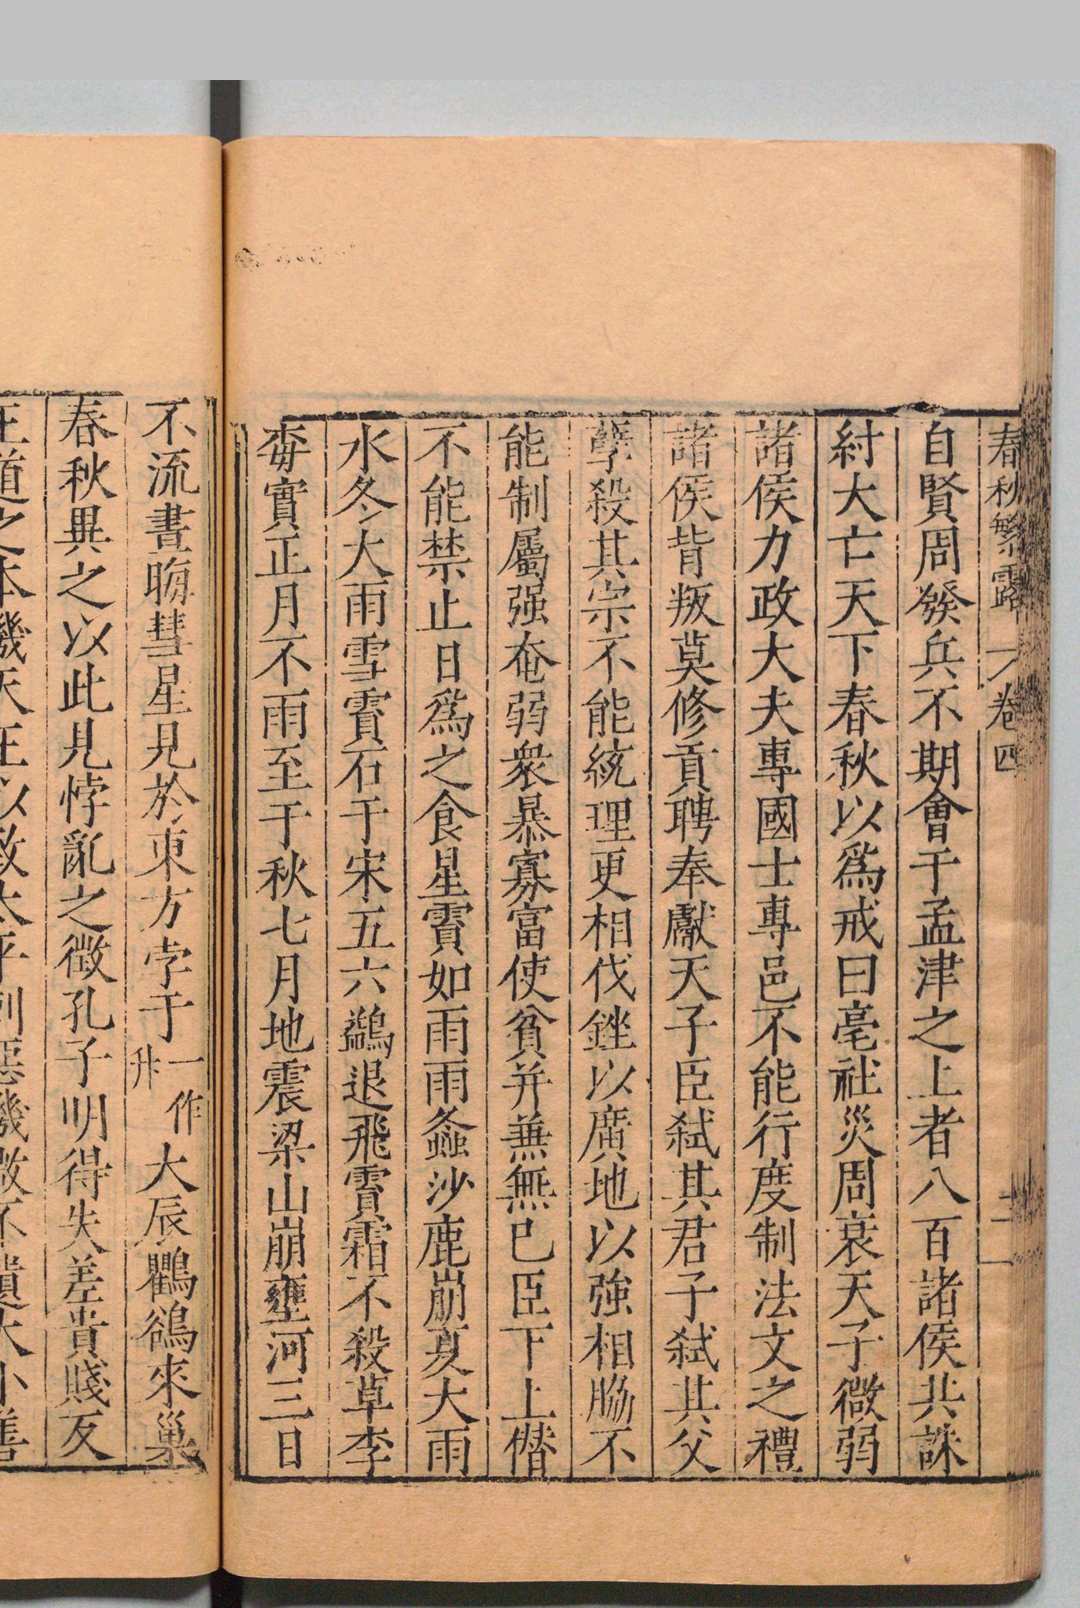 春秋繁露 卷四 二
自賢周發兵不期會于孟津之上者八百諸侯共誅
紂大亡天下春秋以爲戒曰亳社災周衰天子微弱
諸侯力政大夫專國士專邑不能行度制法文之禮
諸侯背叛莫修貢聘奉獻天子臣弑其君子弑其父
孽殺其宗不能統理更相伐銼以廣地以強相脇不
能制屬强奄弱衆暴寡富使貧并兼無已臣下上僭
不能禁止日爲之食星霣如雨雨螽沙鹿崩夏大雨
水冬大雨雪霣石于宋五六鷁退飛霣霜不殺草李
梅實正月不雨至于秋七月地震梁山崩壅河三日
不流晝晦彗星見於東方孛于一作升大辰鸛鵒來巢
春秋異之以此見悖亂之徵孔子明得失差貴賤反
王道之本譏天王以致太平刺惡譏微不遺大小善